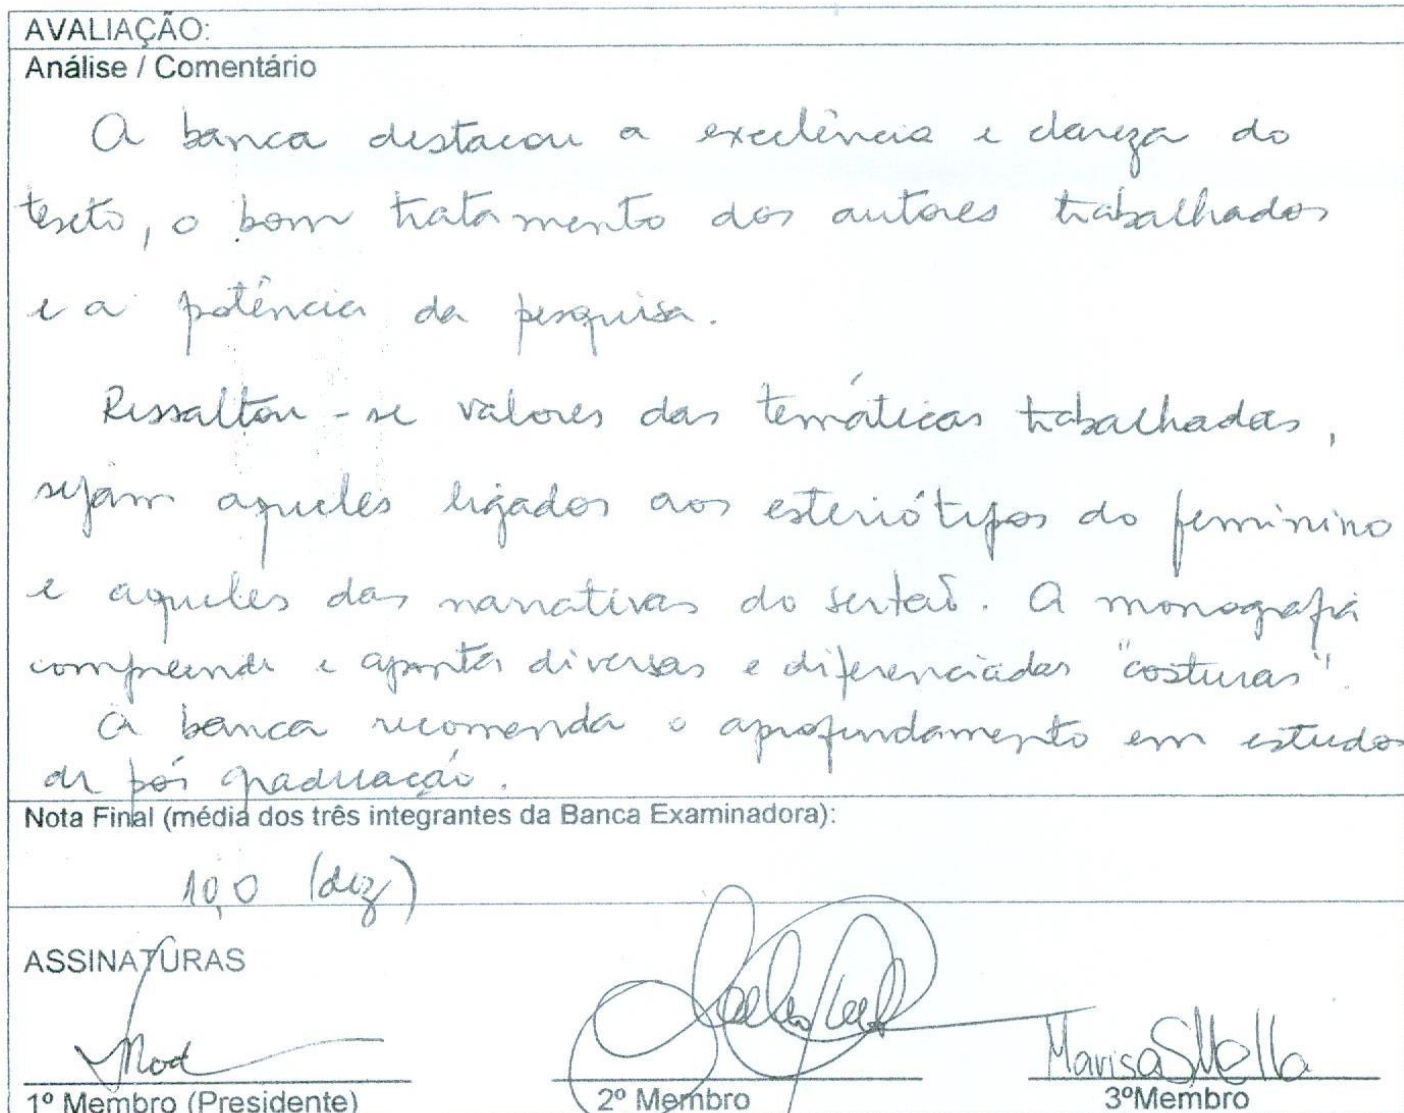 AVALIAÇÃO:
Análise / Comentário
A banca destacou a excelência e clareza do
texto, o bom tratamento dos autores trabalhados
e a potência da pesquisa.
Ressaltou-se valores das temáticas trabalhadas,
sejam aqueles ligados aos esteriótipos do feminino
e aqueles das narrativas do sertão. A monografia
compreende e aponta diversas e diferenciadas "costuras".
A banca recomenda o aprofundamento em estudos
de pós graduação.
Nota Final (média dos três integrantes da Banca Examinadora):
10,0 (dez)
ASSINATURAS
Marisa
1º Membro (Presidente) 2º Membro 3ºMembro